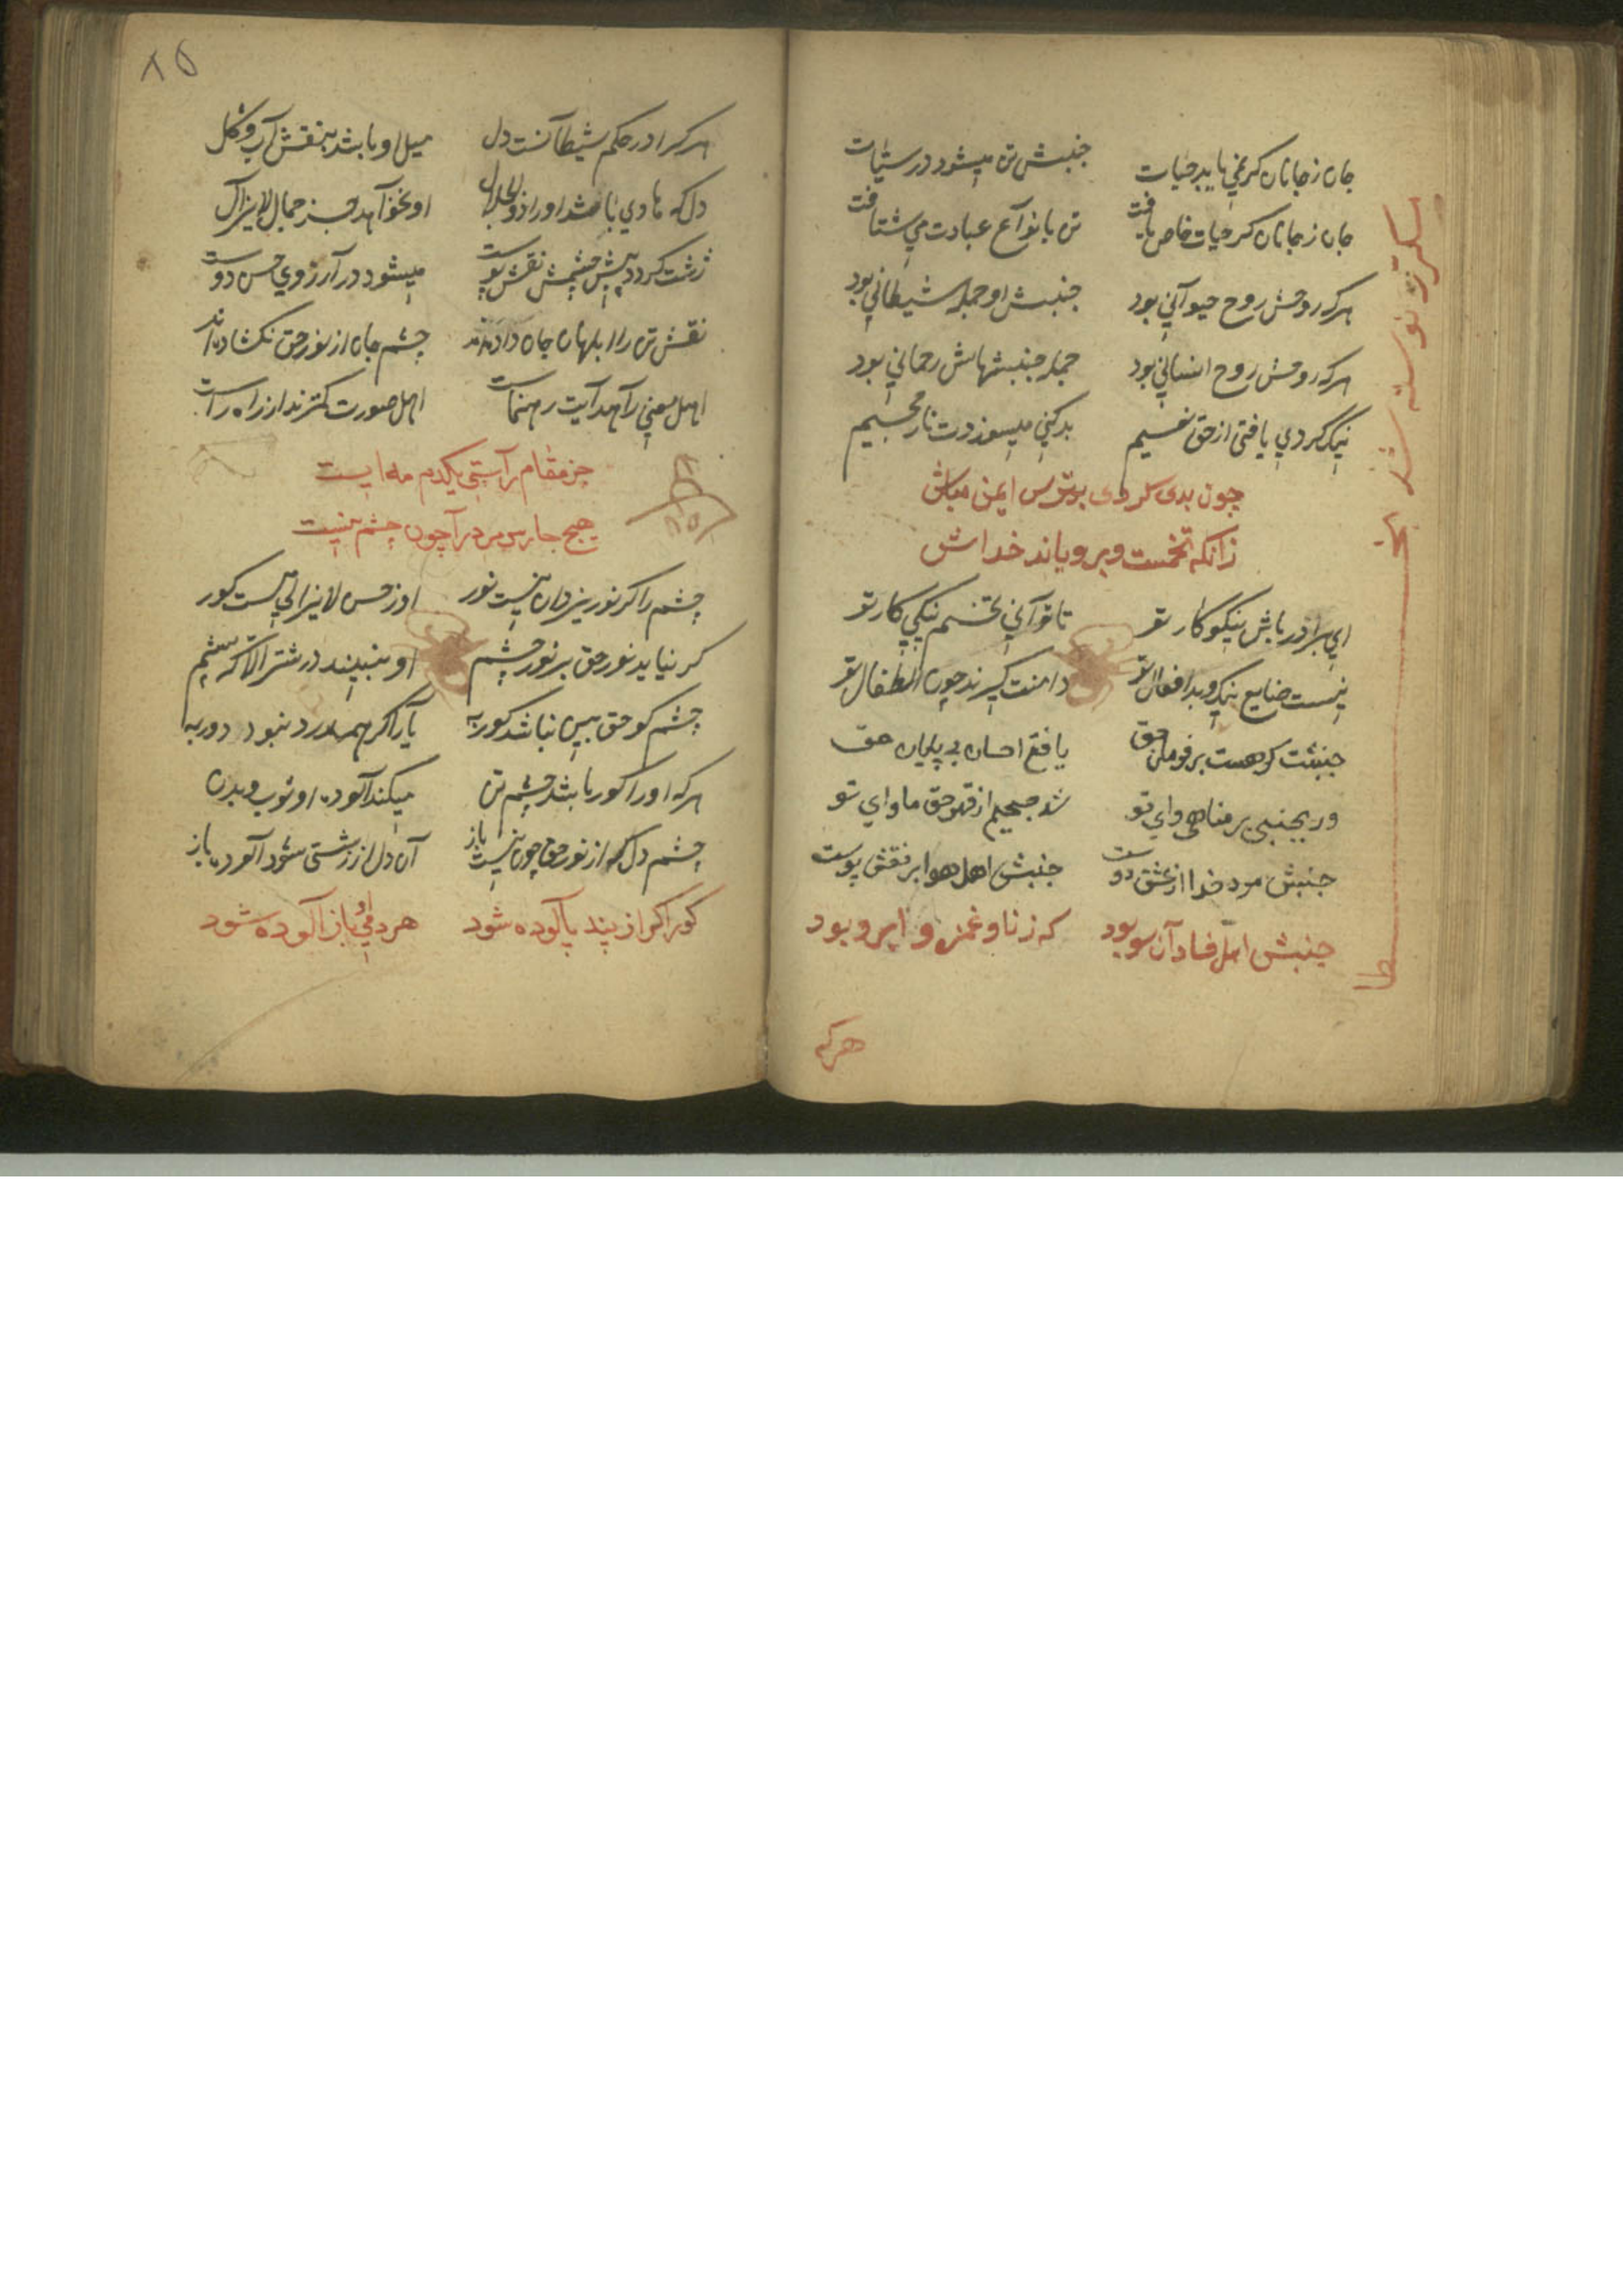 جان ز جانان گر نمی یابد حیات جنبش تن میشود در سیئات
جان ز جانان گر حیات خاص یافت تن بانواع عبادت می شتافت
هر که روحش روح حیوانی بود جنبش او جمله شیطانی بود
هر که روحش روح انسانی بود جمله جنبشهاش رحمانی بود
نیک کردی یافتی از حق نعیم بد کنی میسوزدت نار جحیم
چون بدی کردی بترس ایمن مباش
زانکه تخمست و برویاند خداش
ای برادر باش نیکو کار تو تا توانی تخم نیکی کار تو
نیست ضایع نیک و بد افعال تو دامنت گیرند چون اطفال تو
جنبشت گر هست بر فرمان حق یافتی احسان بی پایان حق
ور بجنبی بر مناهی وای تو شد جحیم از قهر حق ماوای تو
جنبش مرد خدا از عشق دوست جنبش اهل هوا بر نقش پوست
جنبش اهل فساد آن سو بود که زنا و غمزه و ابرو بود
هرکه
۸۵
هر کرا در حکم شیطانست دل میل او باشد بنقش آب و گل
دل که هادی باشد او را ذوالجلال او نخواهد جز جمال لایزال
زشت گردد پیش چشمش نقش پوست میشود در آرزوی حسن دوست
نقش تن را ابلهان جان داده اند چشم جان از نور حق نگشاده اند
اهل معنی را هدایت رهنماست اهل صورت کمترند از راه راست
جز مقام راستی یکدم مه ایست
هیچ جا رس مرد را چون چشم نیست
چشم را گر نور یزدان نیست نور او ز حسن لایزالی هست کور
گر نیاید نور حق بر نور چشم او نبیند در شتر الا که پشم
چشم کو حق بین نباشد کور به یار اگر همدرد نبود دور به
هر که او را کور باشد چشم تن میکند آلوده او ثوب و بدن
چشم دل که از نور حق چون نیست باز آن دل از زشتی شود آلوده باز
کور اگر از پند پالوده شود هر دمی او باز آلوده شود